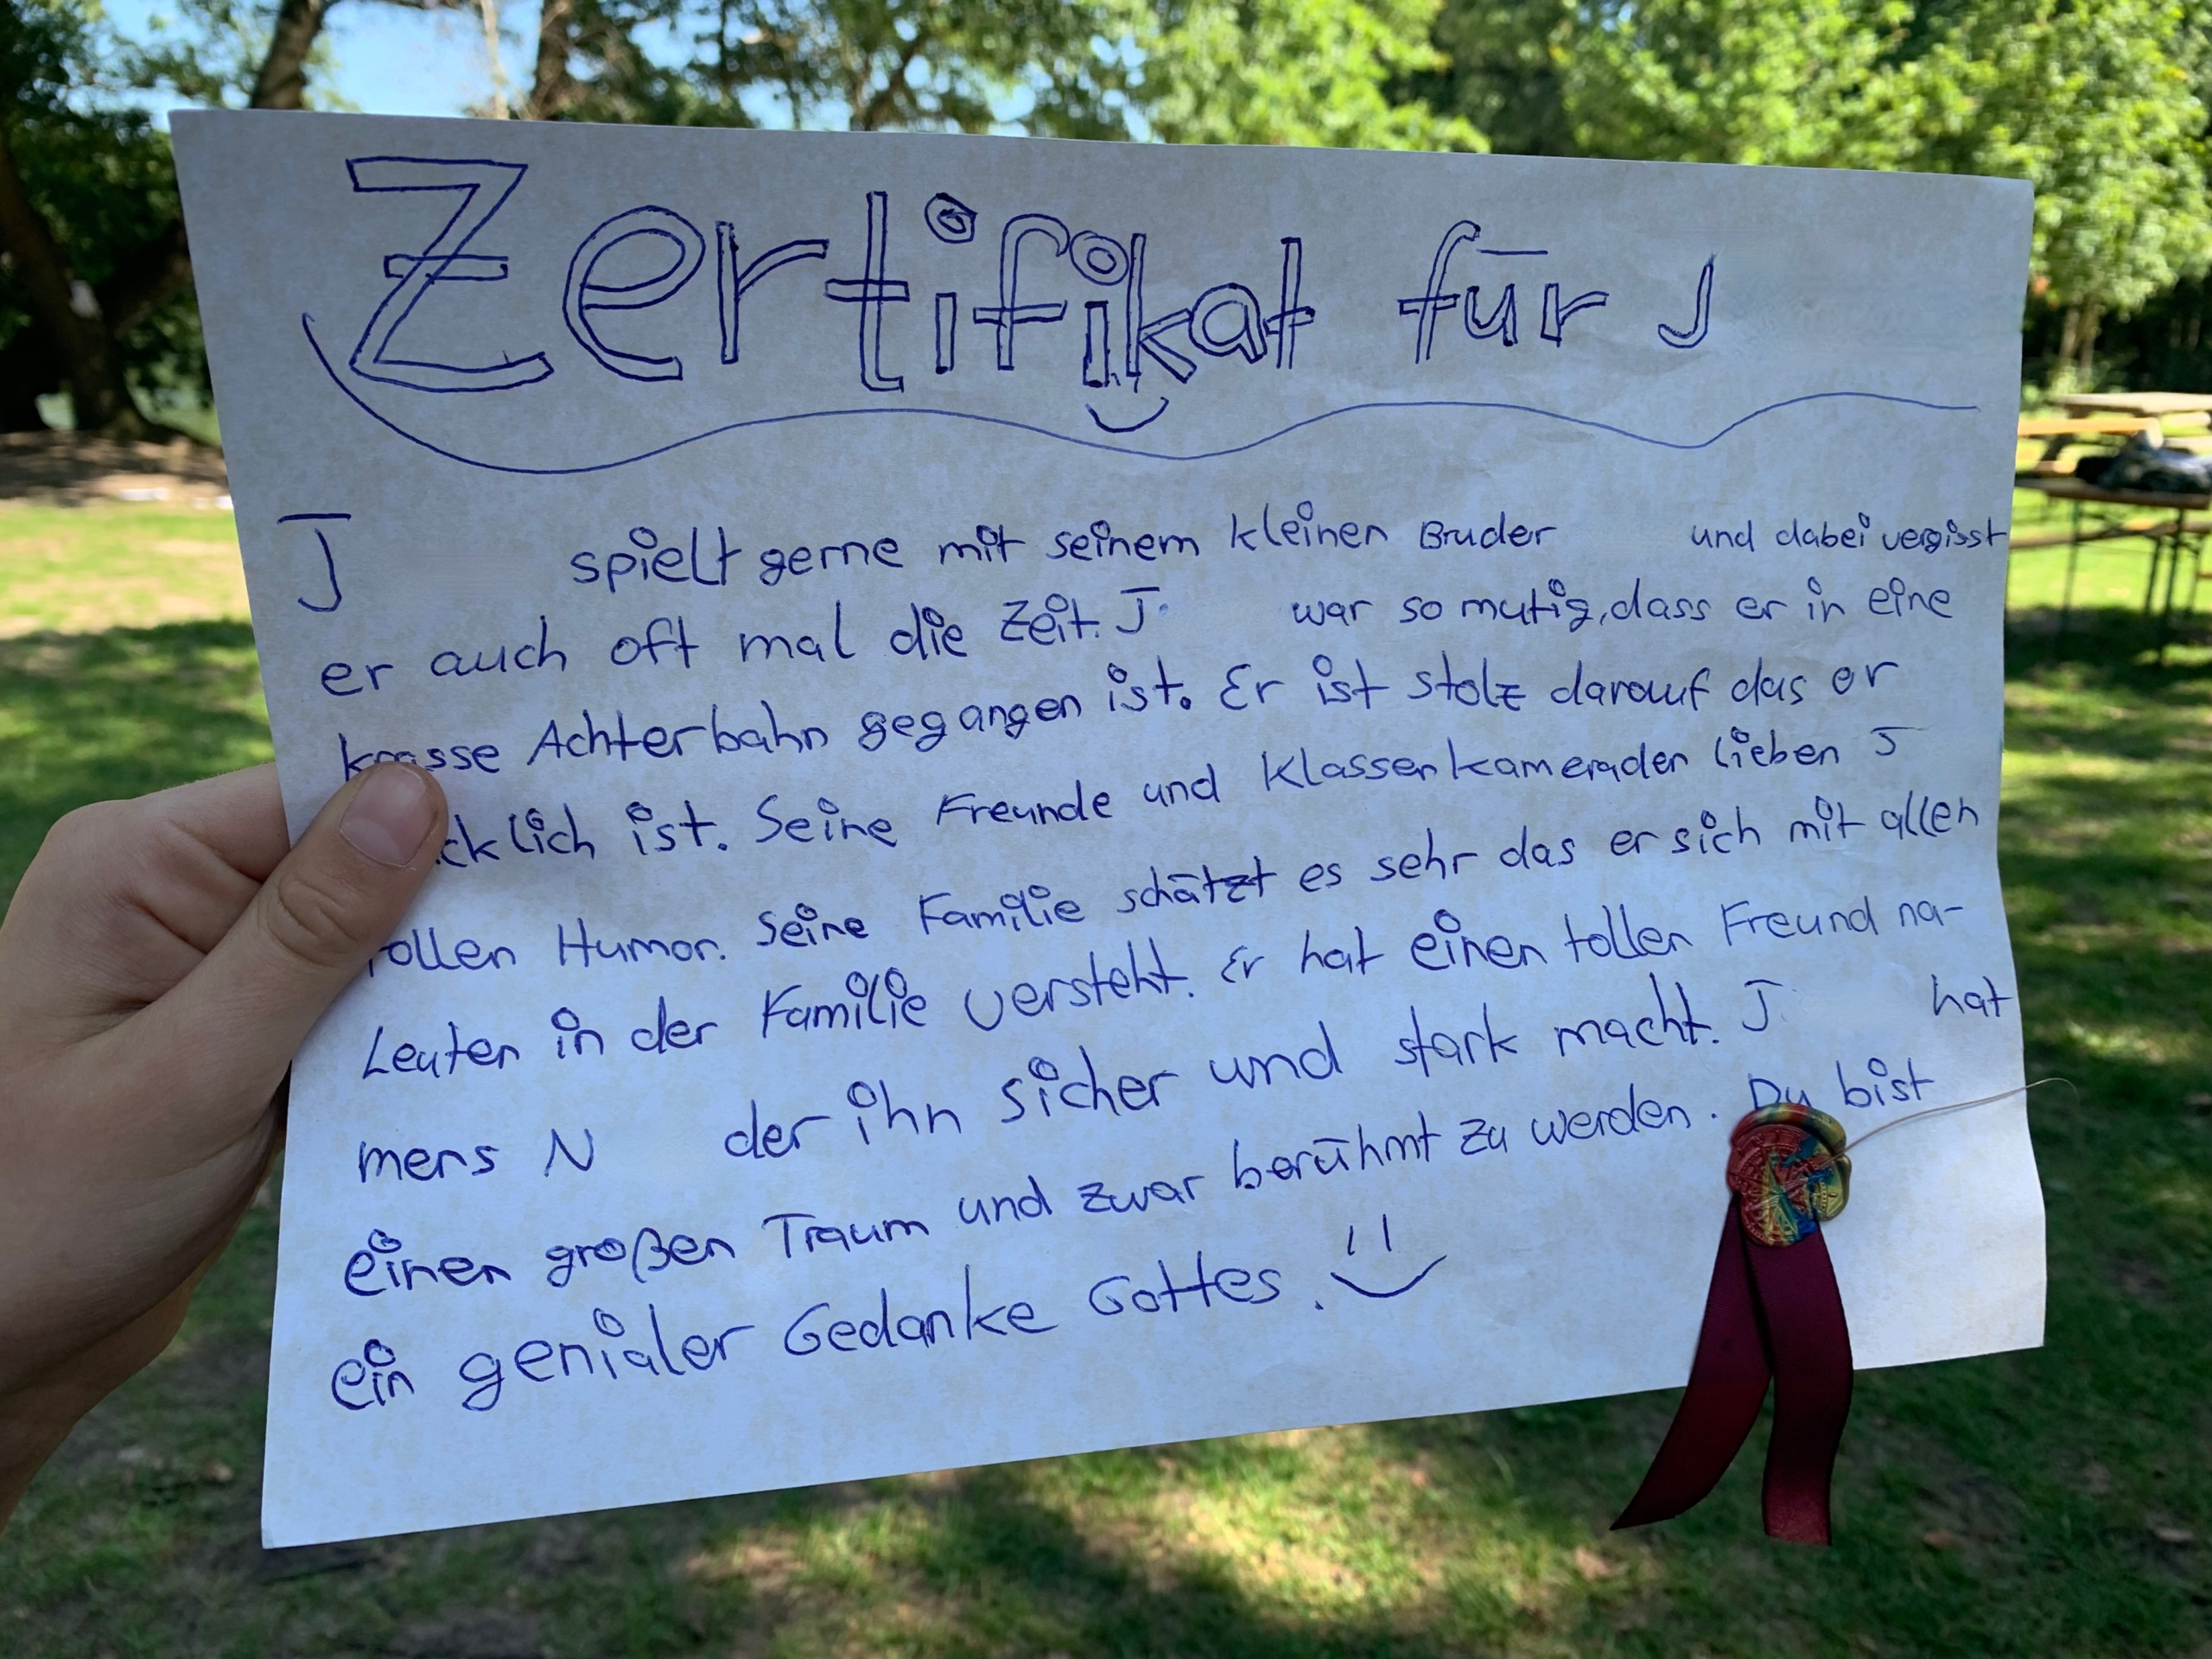 Zertifikat für J
J spielt gerne mit seinem kleinen Bruder und dabei vergisst
er auch oft mal die Zeit. J war so mutig, dass er in eine
krasse Achterbahn gegangen ist. Er ist stolz darauf das er
cklich ist. Seine Freunde und Klassenkameraden lieben J
tollen Humor. Seine Familie schätzt es sehr das er sich mit allen
Leuten in der Familie versteht. Er hat einen tollen Freund na-
mens N der ihn sicher und stark macht. J hat
einen großen Traum und zwar berühmt zu werden. Du bist
ein genialer Gedanke Gottes.